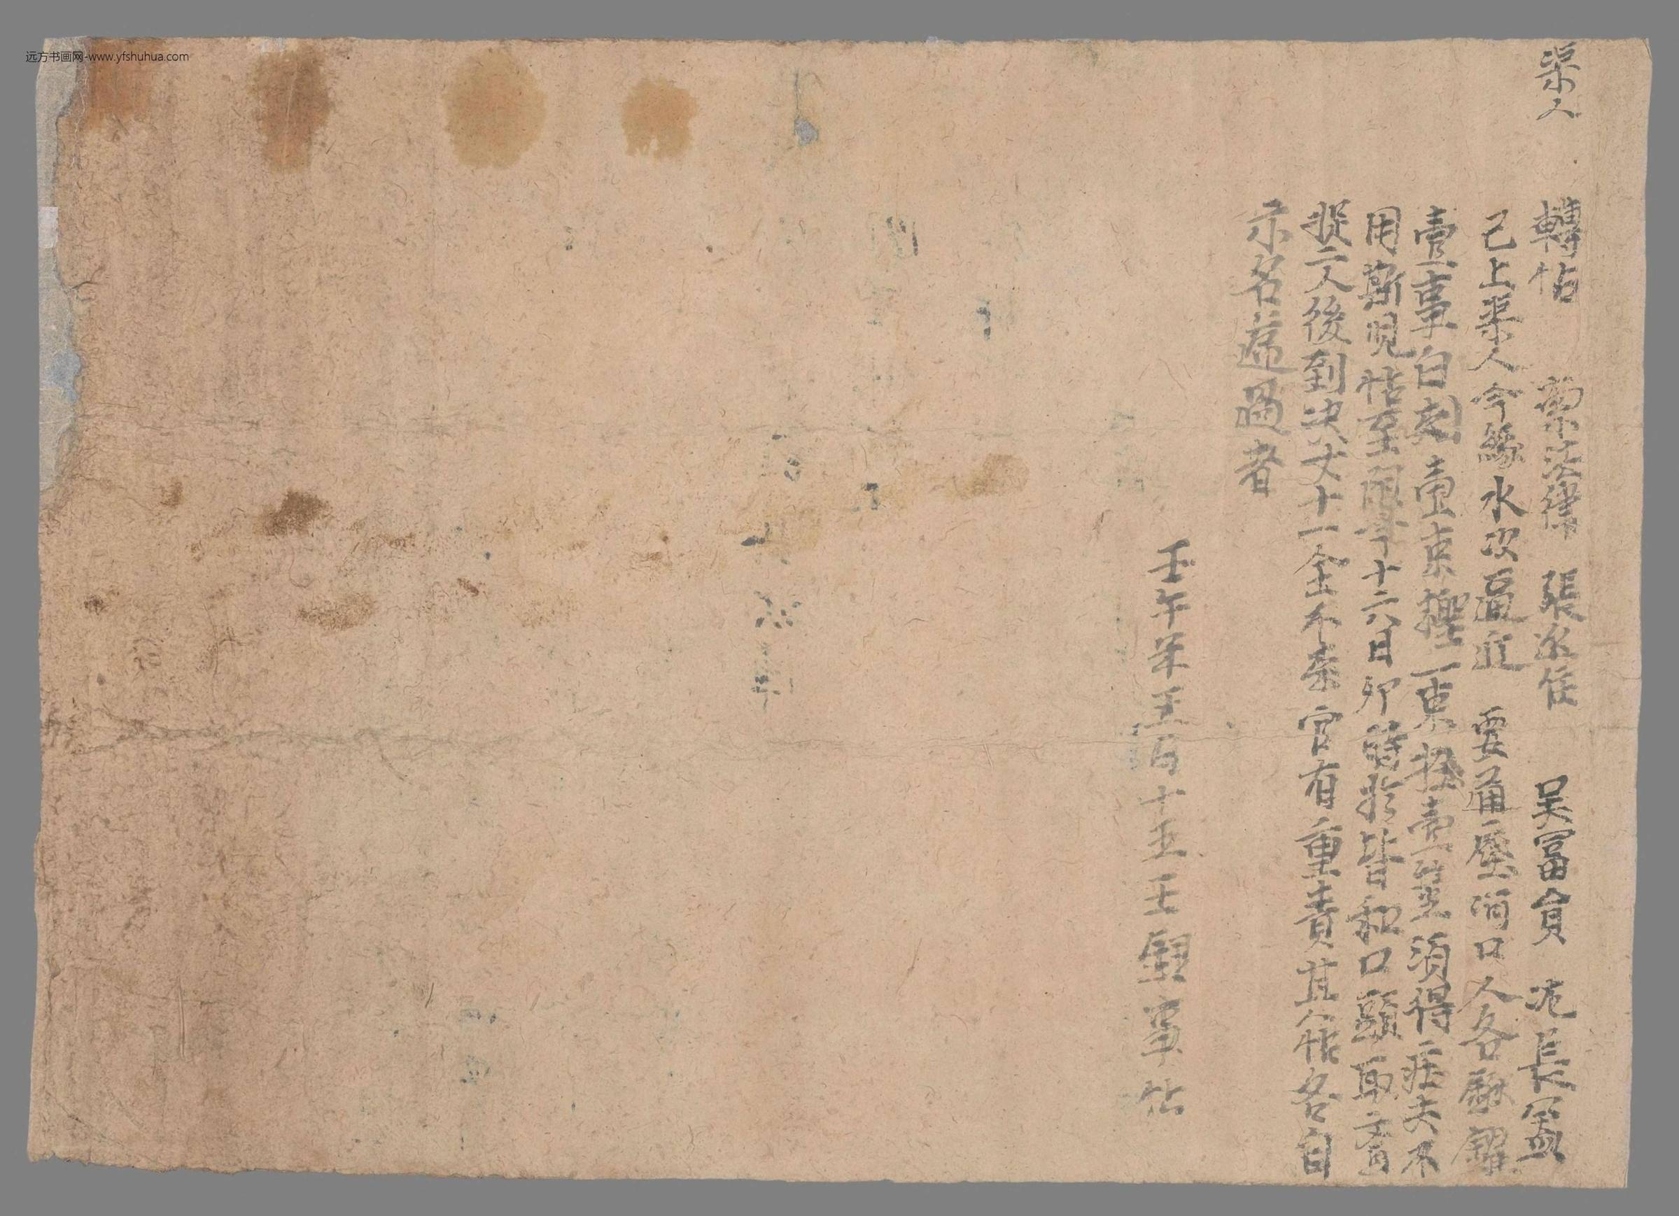 渠人　轉帖　索法律　張　住　吳富員　氾長盈
已上渠人今緣水次逼近　要通底河口人各鍬钁
壹事白刺壹束檉一束栓壹莖須得莊夫不
用厮兒帖至限今十六日卯時於皆和口頭取齊
捉二人後到決丈十一全不來官有重責其帖各自
示名遞過者
壬午年五月十五王録事帖
远方书画网-www.yfshuhua.com